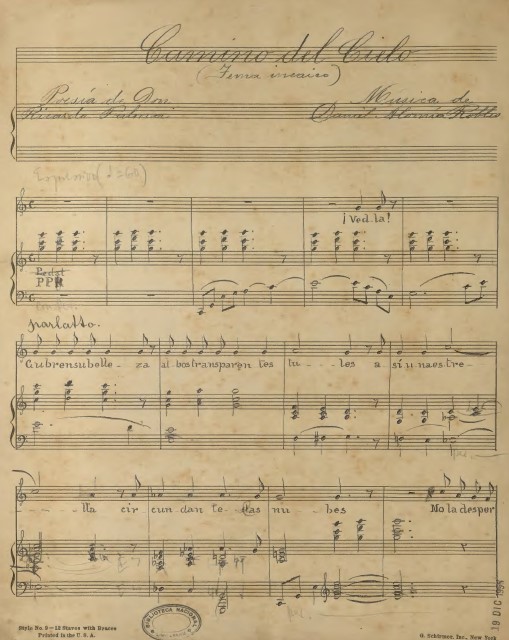 Camino del Cielo
(Tema incaico)
Poesía de Don
Ricardo Palma
Musica de
Daniel Alomia Robles
¡Ved-la!
PPP
parlatto.
Cubren su belle- za al-bos transparen tes tu---les a si una estre-
-----lla cir cun dan te- las nu- bes No la desper
BIBLIOTECA NACIONAL
19 DIC 1994
Style No. 8—12 Staves with Braces
Printed in the U. S. A.
G. Schirmer, Inc., New York